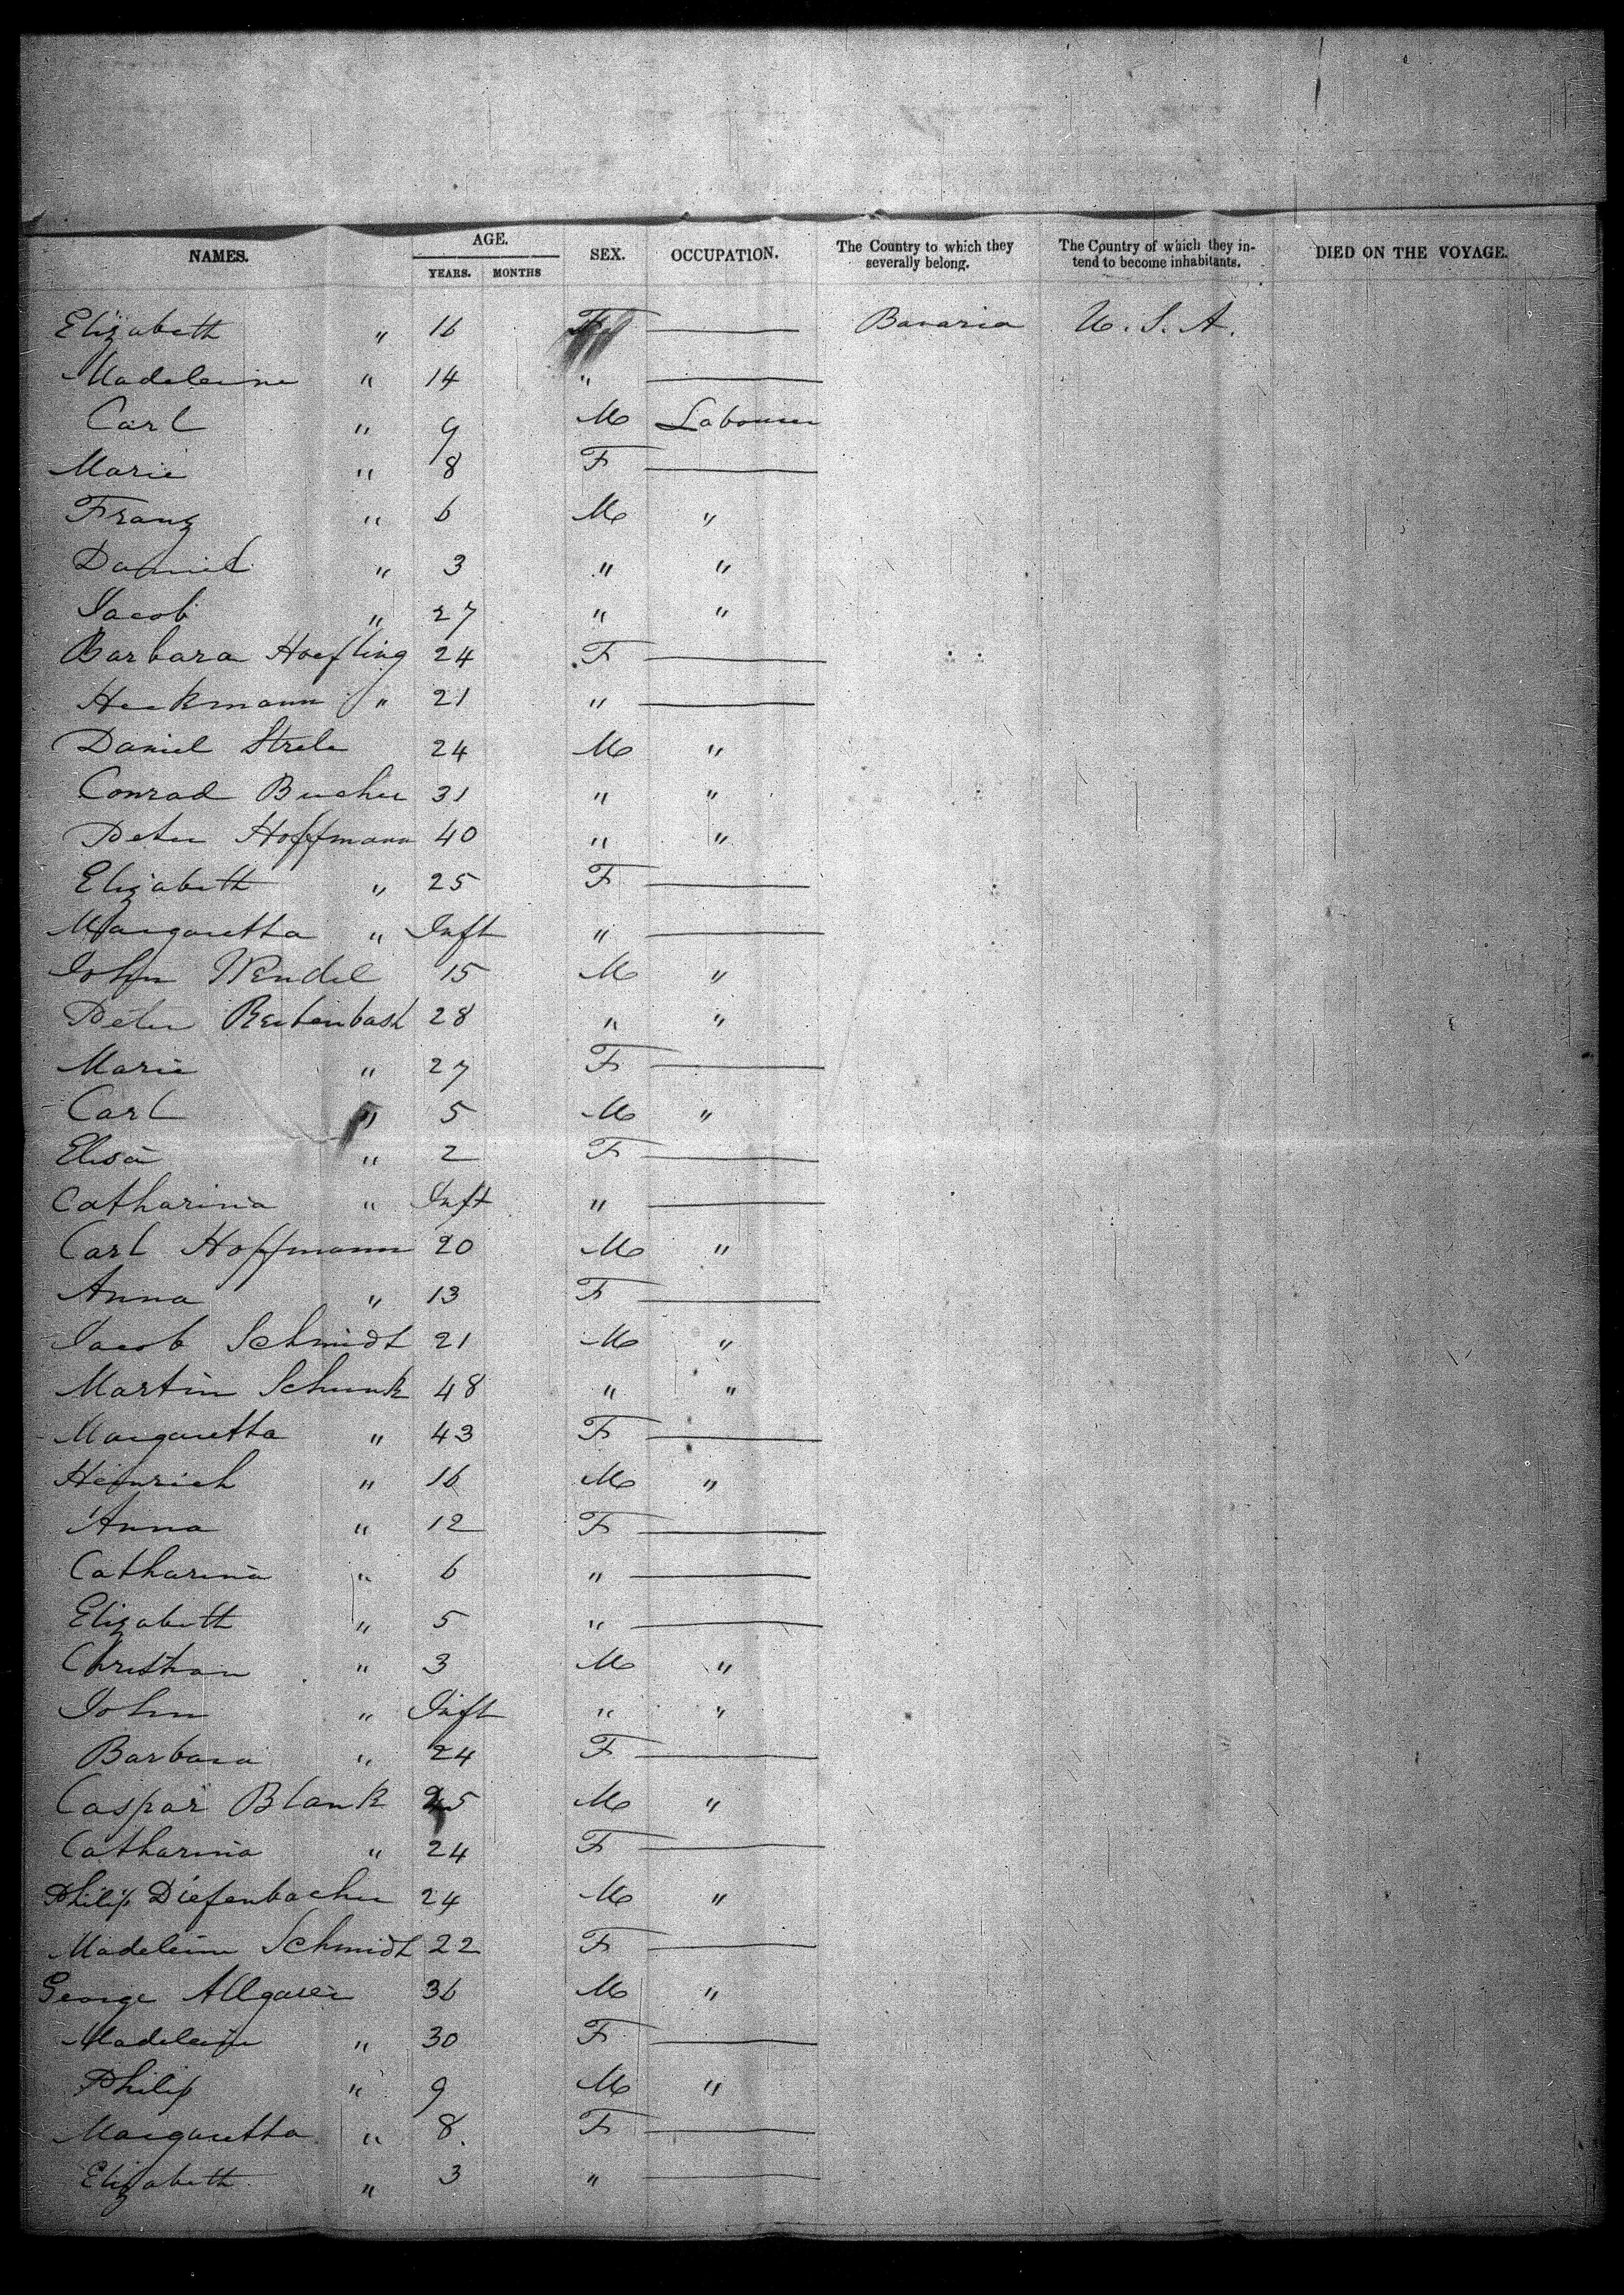 NAMES. AGE. SEX. OCCUPATION. The Country to which they severally belong. The Country of which they intend to become inhabitants. DIED ON THE VOYAGE.
YEARS. MONTHS
Elizabeth " 16 F — Bavaria U. S. A.
Madeleine " 14 " —
Carl " 9 M Labourer
Marie " 8 F —
Franz " 6 M "
Daniel " 3 " "
Jacob " 27 " "
Barbara Hoefling 24 F —
Heckmann " 21 " —
Daniel Strele 24 M "
Conrad Bucher 31 " "
Peter Hoffmann 40 " "
Elizabeth " 25 F —
Margaretha " Inft " —
John Wendel 15 M "
Peter 28 " "
Marie " 27 F —
Carl " 5 M "
Elisa " 2 F —
Catharina " Inft " —
Carl Hoffmann 20 M "
Anna " 13 F —
Jacob Schmidt 21 M "
Martin Schunk 48 " "
Margaretha " 43 F —
Heinrich " 16 M "
Anna " 12 F —
Catharina " 6 " —
Elizabeth " 5 " —
Christian " 3 M "
John " Inft " "
Barbara " 24 F —
Caspar Blank 25 M "
Catharina " 24 F —
Philip Diefenbacher 24 M "
Madeleine Schmidt 22 F —
George Allgaier 36 M "
Madeleine " 30 F —
Philip " 9 M "
Margaretha " 8 F —
Elizabeth " 3 " —